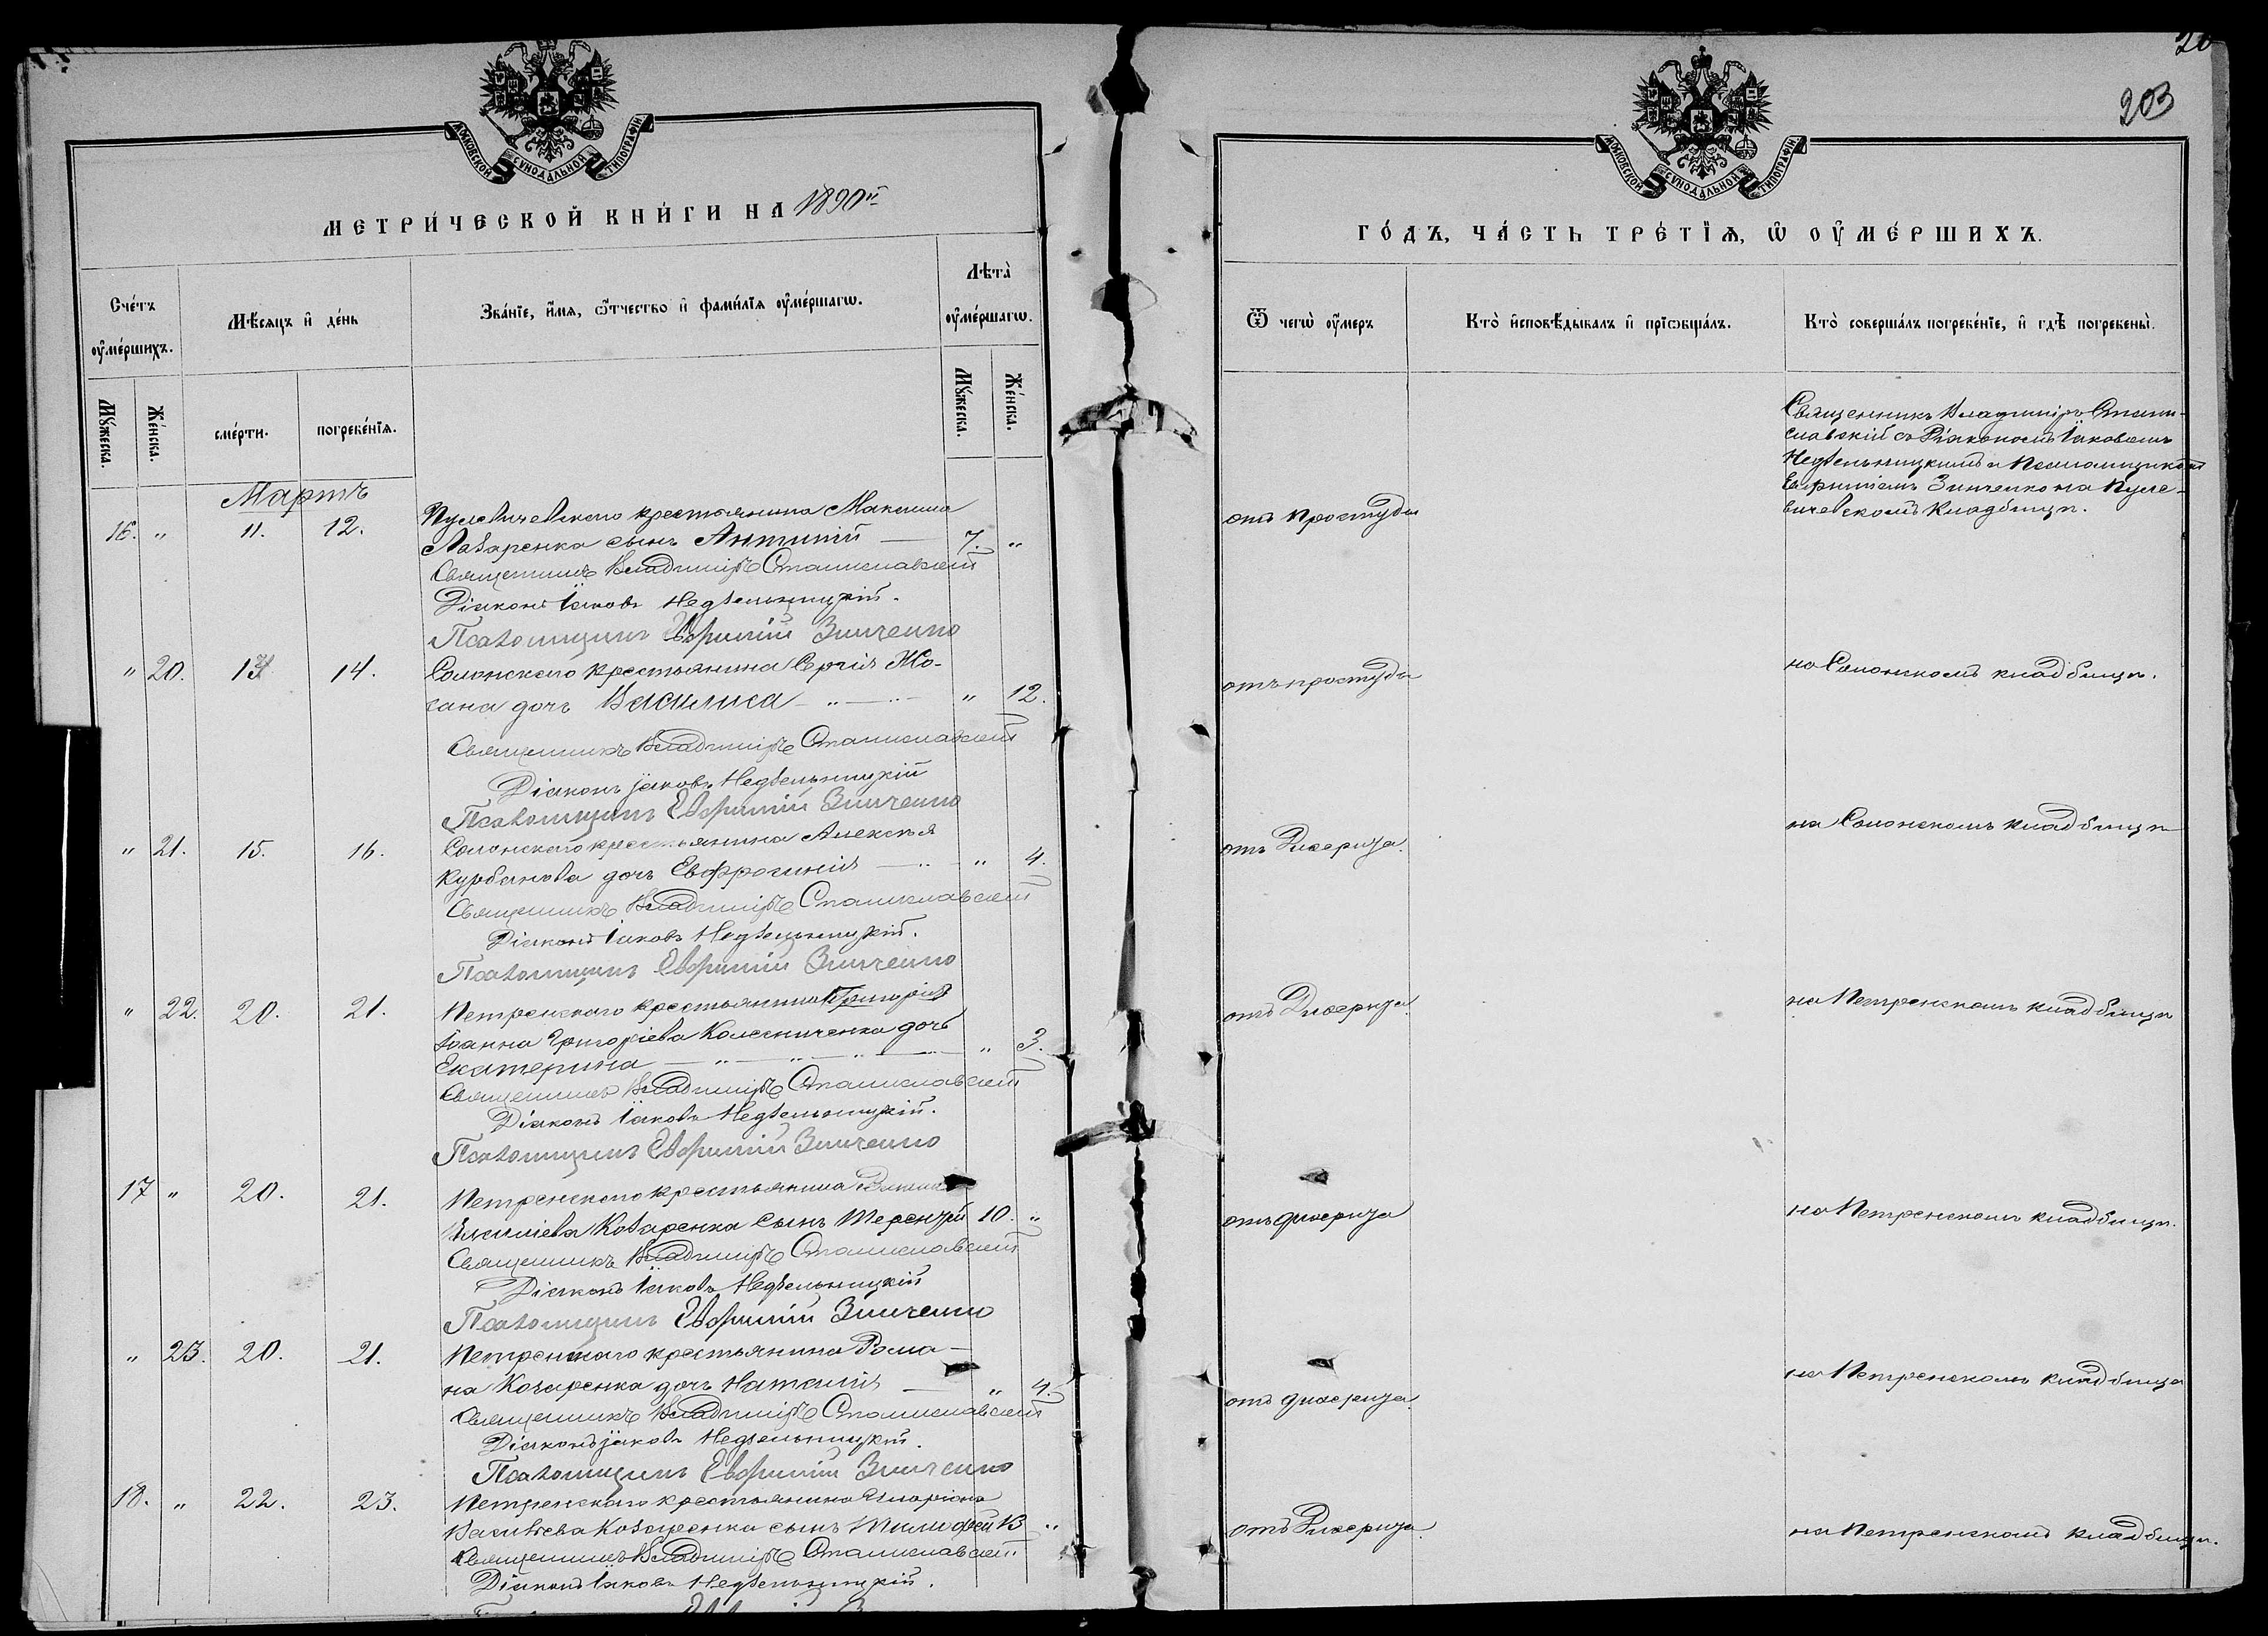 МОСКОВСКОЙ СУНОДАЛЬНОЙ ТИПОГРАФІИ
МЕТРИ́ЧЕСКОЙ КНИ́ГИ НА 1890й
Сче́тъ оуме́ршихъ.
Мѣ́сяцъ и де́нь
Зва́нїе, и́мя, ѻтчество и фами́лїя оуме́ршагѡ.
Лѣта̀ оуме́ршагѡ.
Мꙋ́жеска.
Же́нска.
сме́рти.
погребе́нїя.
Мꙋ́жеска.
Же́нска.
Мартъ
16. " 11. 12. Пулевичевскаго крестьянина Максима
Лазаренка сынъ Антипій — 7. "
Священникъ Владиміръ Станиславскій
Діаконъ Іаковъ Недѣльницкій.
Псаломщикъ Евфимій Зинченко
" 20. 13 14. Солонскаго крестьянина Сергія Ко-
сана дочь Василиса — " 12.
Священникъ Владиміръ Станиславскій
Діаконъ Іаковъ Недѣльницкій
Псаломщикъ Евфимій Зинченко
" 21. 15. 16. Солонскаго крестьянина Алексѣя
Курбанова дочь Евфросинія — " 4.
Священникъ Владиміръ Станиславскій
Діаконъ Іаковъ Недѣльницкій.
Псаломщикъ Евфимій Зинченко
" 22. 20. 21. Петренскаго крестьянина Григорія
Іоанна Григоріева Колесниченка дочь
Екатерина — " 3.
Священникъ Владиміръ Станиславскій
Діаконъ Іаковъ Недѣльницкій.
Псаломщикъ Евфимій Зинченко
17 " 20. 21. Петренскаго крестьянина
Козаренка сынъ Терентій 10. "
Священникъ Владиміръ Станиславскій
Діаконъ Іаковъ Недѣльницкій
Псаломщикъ Евфимій Зинченко
" 23. 20. 21. Петренскаго крестьянина Рома-
на Козаренка дочь Наталія — " 4.
Священникъ Владиміръ Станиславскій
Діаконъ Іаковъ Недѣльницкій.
Псаломщикъ Евфимій Зинченко
18. " 22. 23. Петренскаго крестьянина Иларіона
Васильева Козаренка сынъ Тимофей 13 "
Священникъ Владиміръ Станиславскій
Діаконъ Іаковъ Недѣльницкій.
20
203
МОСКОВСКОЙ СУНОДАЛЬНОЙ ТИПОГРАФІИ
ГО́ДЪ, ЧА́СТЬ ТРЕ́ТЇѦ, Ѽ ОУМЕ́РШИХЪ.
Ѿ чегѡ̀ оу́меръ
Кто̀ и҆сповѣ́дывалъ и҆ прїѡбща́лъ.
Кто̀ соверша́лъ погребе́нїе, и҆ гдѣ̀ погребены̀.
Священникъ Владиміръ Стани-
славскій съ Діакономъ Іаковомъ
Недѣльницкимъ и Псаломщикомъ
Евфиміемъ Зинченко на Пуле-
вичевскомъ кладбищѣ.
отъ простуды
отъ простуды на Солонскомъ кладбищѣ.
отъ Дисерита. на Солонскомъ кладбищѣ
отъ Дисерита. на Петренскомъ кладбищѣ
отъ дисерита на Петренскомъ кладбищѣ.
отъ дисерита. на Петренскомъ кладбищѣ
отъ Дисерита. на Петренскомъ кладбищѣ.